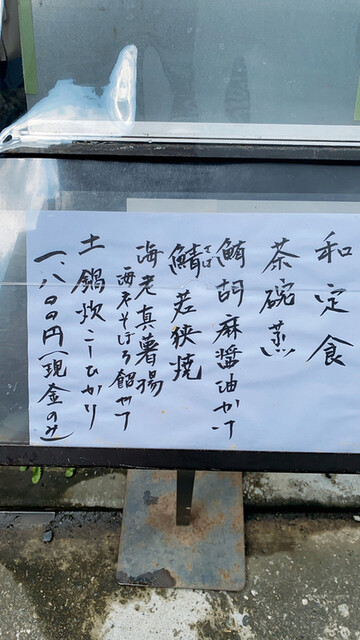 和定食
茶碗蒸し
鮪胡麻醤油かけ
鯖さば若狭焼
海老真薯揚
海老そぼろ餡やけ
土鍋炊こしひかり
一、八〇〇円(現金のみ)